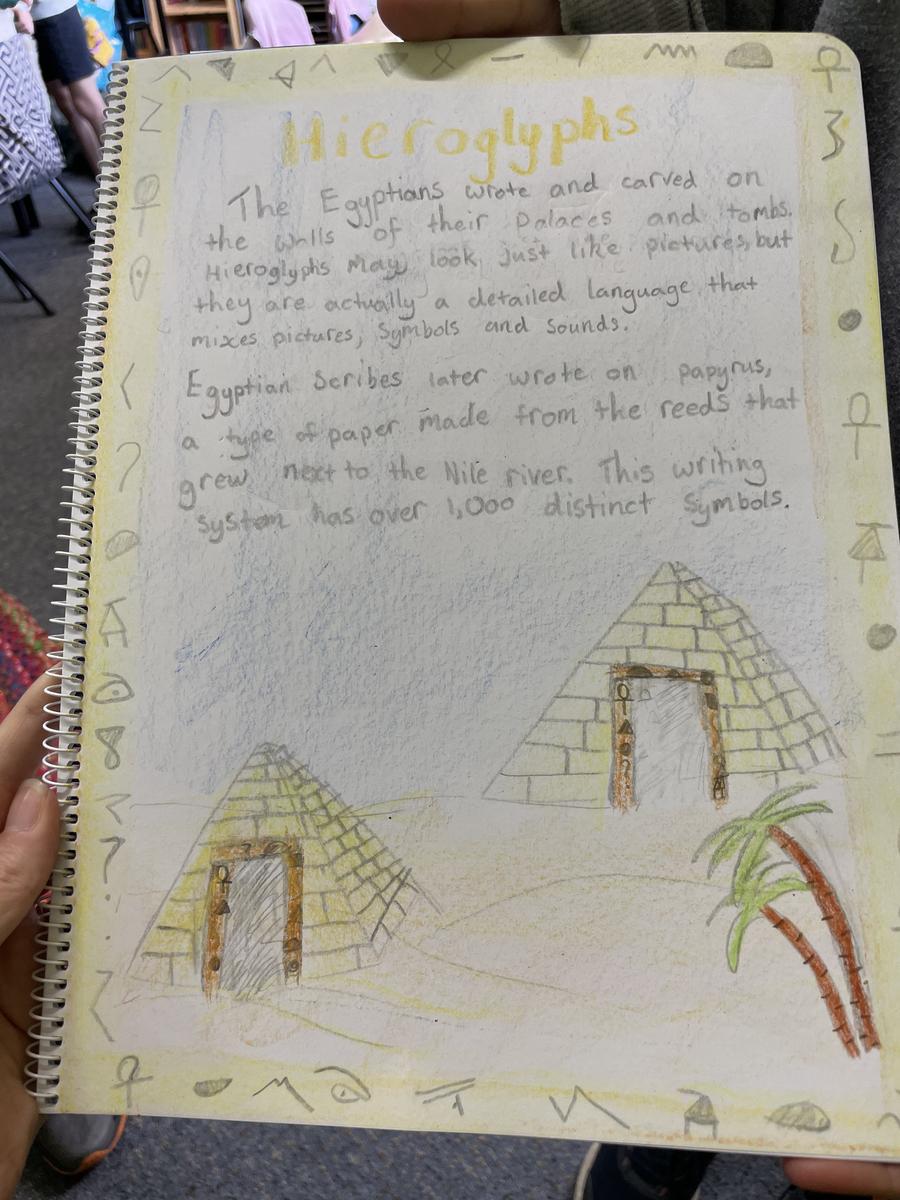 Hieroglyphs
The Egyptians wrote and carved on
the walls of their Palaces and tombs.
Hieroglyphs May look just like pictures, but
they are actually a detailed language that
mixes pictures, Symbols and Sounds.
Egyptian Scribes later wrote on papyrus,
a type of paper made from the reeds that
grew next to the Nile river. This writing
system has over 1,000 distinct Symbols.